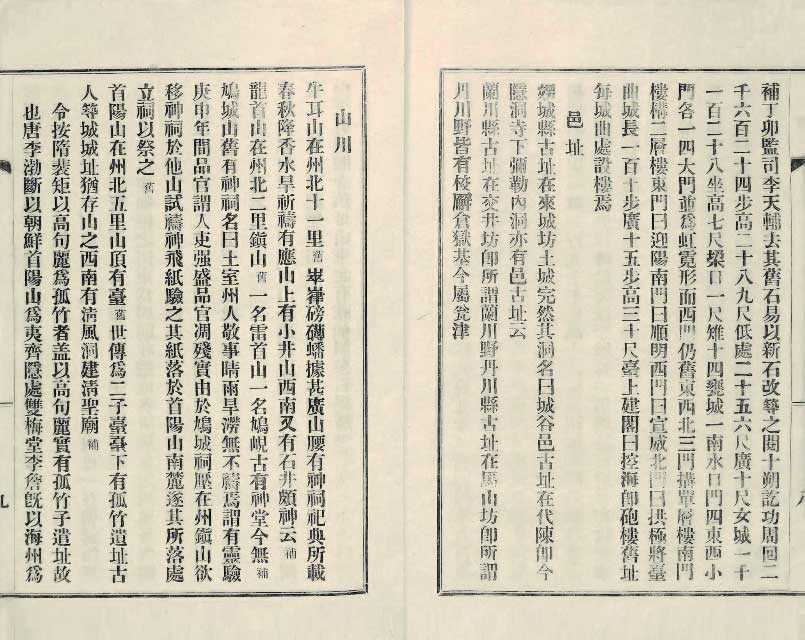 補丁卯監司李天輔去其舊石易以新石改築之閱十朔訖功周回二
千六百二十四步高二十八九尺低處二十五六尺廣十尺女城一千
一百二十八坐高七尺垜口一尺雉十四甕城一南水口門四東西小
門各一四大門並爲虹霓形而西門仍舊東西北三門搆單層樓南門
樓構二層樓東門曰迎陽南門曰順明西門曰宣威北門曰拱極將臺
曲城長一百十步廣十五步高三十尺臺上建閣曰控海卽砲樓舊址
每城曲處設樓焉
邑址
城縣古址在來城坊土城完然其洞名曰城谷邑古址在代陳卽今
隱洞寺下彌勒內洞亦有邑古址云
蘭川縣古址在交井坊卽所謂蘭川野丹川縣古址在馬山坊卽所謂
丹川野皆有校廨倉獄基今屬瓮津
山川
牛耳山在州北十一里舊崒嵂磅礴蟠據甚廣山腰有神祠祀典所載
春秋降香水旱祈禱有應山上有小井山西南又有石井頗神云補
龍首山在州北二里鎭山舊一名雷首山一名鳩峴古有神堂今無補
鳩城山舊有神祠名曰土室州人敬事晴雨旱澇無不禱焉謂有靈驗
庚申年間品官謂人吏强盛品官凋殘實由於鳩城祠壓在州鎭山欲
移神祠於他山試禱神飛紙驗之其紙落於首陽山南麓遂其所落處
立祠以祭之舊
首陽山在州北五里山頂有臺舊世傳爲二子臺臺下有孤竹遺址古
人築城城址猶存山之西南有淸風洞建淸聖廟補
令按隋裴矩以高句麗爲孤竹者盖以高句麗實有孤竹子遺址故
也唐李渤斷以朝鮮首陽山爲夷齊隱處雙梅堂李詹旣以海州爲
九